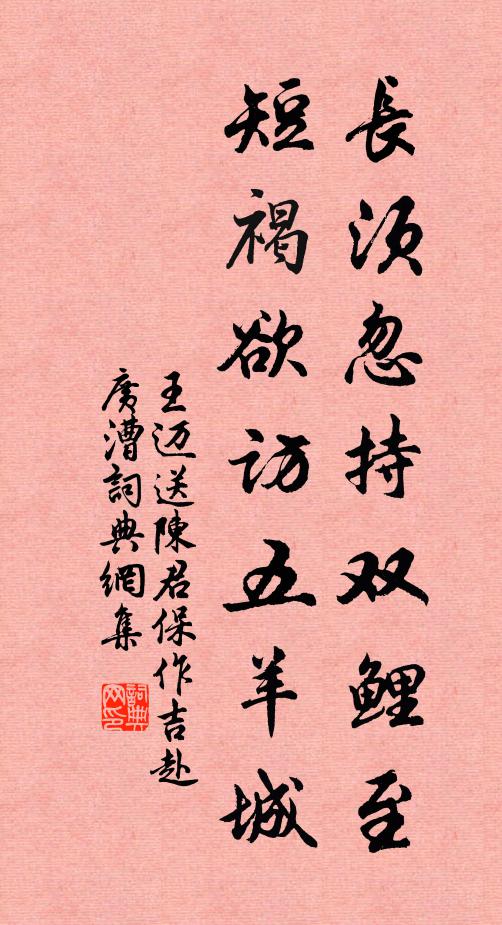 長须忽持双鲤至
短褐欲访五羊城
王迈送陳君保作吉赴
廣漕詞典網集
詞典网印